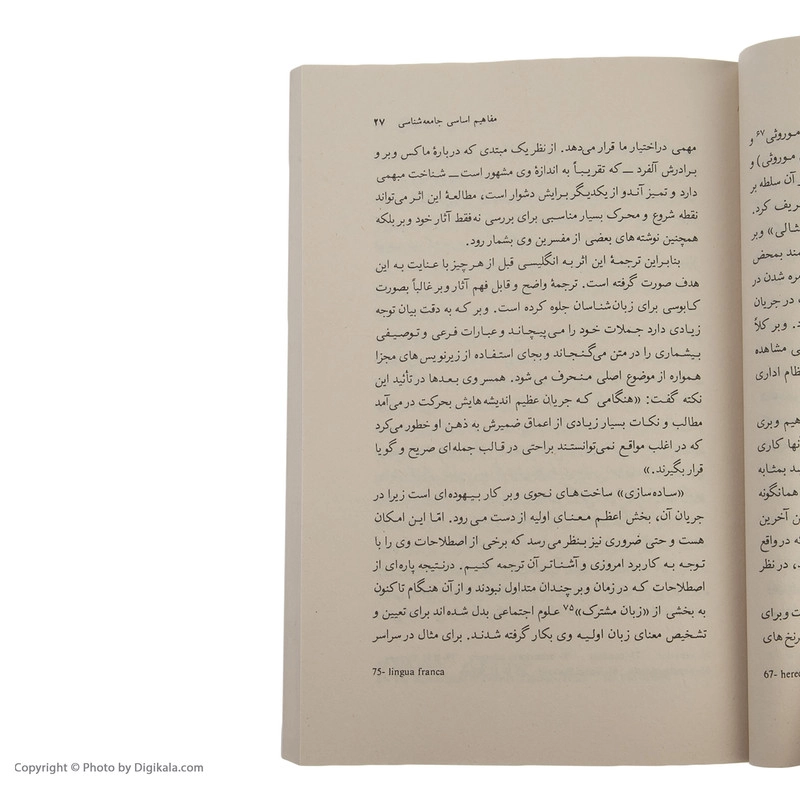 مفاهیم اساسی جامعه‌شناسی ۲۷
مهمی دراختیار ما قرار می‌دهد. از نظر یک مبتدی که دربارهٔ ماکس وبر و
برادرش آلفرد — که تقریباً به اندازهٔ وی مشهور است — شناخت مبهمی
دارد و تمیز آندو از یکدیگر برایش دشوار است، مطالعهٔ این اثر می‌تواند
نقطه شروع و محرک بسیار مناسبی برای بررسی نه‌فقط آثار خود وبر بلکه
همچنین نوشته‌های بعضی از مفسرین وی بشمار رود.
بنابراین ترجمهٔ این اثر به انگلیسی قبل از هر چیز با عنایت به این
هدف صورت گرفته است. ترجمهٔ واضح و قابل فهم آثار وبر غالباً بصورت
کابوسی برای زبان‌شناسان جلوه کرده است. وبر که به دقت بیان توجه
زیادی دارد جملات خود را می‌پیچاند و عبارات فرعی و توصیفی
بیشماری را در متن می‌گنجاند و بجای استفاده از زیرنویس‌های مجزا
همواره از موضوع اصلی منحرف می‌شود. همسر وی بعدها در تأئید این
نکته گفت: «هنگامی که جریان عظیم اندیشه‌هایش بحرکت در می‌آمد
مطالب و نکات بسیار زیادی از اعماق ضمیرش به ذهن او خطور می‌کرد
که در اغلب مواقع نمی‌توانستند براحتی در قالب جمله‌ای صریح و گویا
قرار بگیرند.»
«ساده‌سازی» ساخت‌های نحوی وبر کار بیهوده‌ای است زیرا در
جریان آن، بخش اعظم معنای اولیه از دست می‌رود. امّا این امکان
هست و حتی ضروری نیز بنظر می‌رسد که برخی از اصطلاحات وی را با
توجه به کاربرد امروزی و آشناتر آن ترجمه کنیم. درنتیجه پاره‌ای از
اصطلاحات که در زمان وبر چندان متداول نبودند و از آن هنگام تاکنون
به بخشی از «زبان مشترک»۷۵ علوم اجتماعی بدل شده‌اند برای تعیین و
تشخیص معنای زبان اولیه وی بکار گرفته شدند. برای مثال در سراسر
75- lingua franca
موروثی۶۷ و
موروثی) و
آن سلطه بر
ریف کرد.
شالی» وبر
مند بمحض
مره شدن در
در جریان
. وبر کلاً
ی مشاهده
ظام اداری
هیم وبری
نها کاری
د بمثابه
همانگونه
ن آخرین
که در واقع
، در نظر
ت وبرای
رنخ‌های
67- hered
Copyright © Photo by Digikala.com